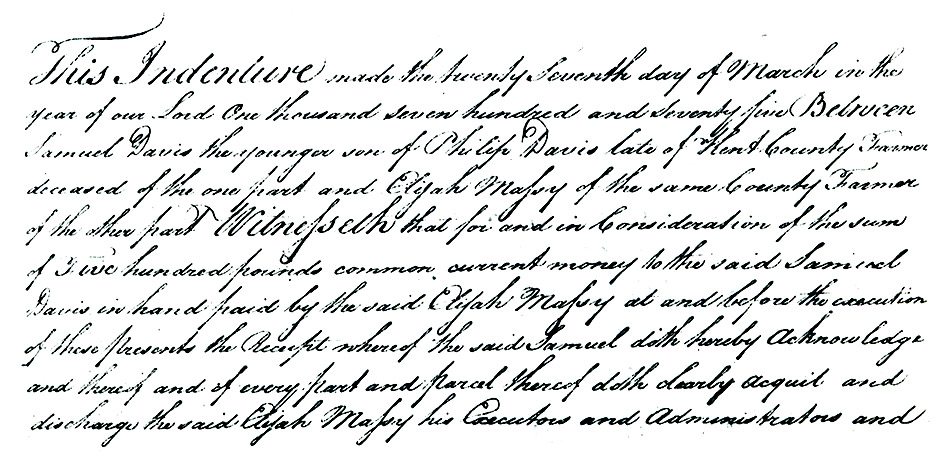 This Indenture made the twenty Seventh day of March in the
year of our Lord One thousand seven hundred and seventy five Between
Samuel Davis the younger son of Philip Davis late of Kent County Farmer
deceased of the one part and Elijah Maſsy of the same County Farmer
of the other part Witneſseth that for and in Consideration of the sum
of Five hundred pounds common current money to the said Samuel
Davis in hand paid by the said Elijah Maſsy at and before the execution
of these presents the Receipt whereof the said Samuel doth hereby Acknowledge
and thereof and of every part and parcel thereof doth clearly acquit and
discharge the said Elijah Maſsy his Executors and Administrators and